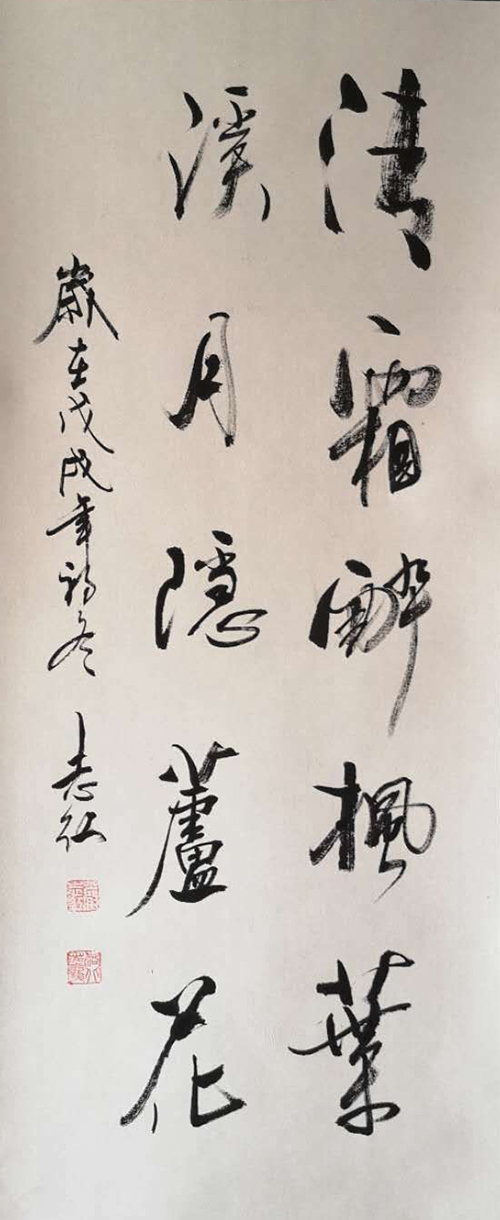 清霜醉楓葉
溪月隱蘆花
歲在戊戌年初冬 志紅